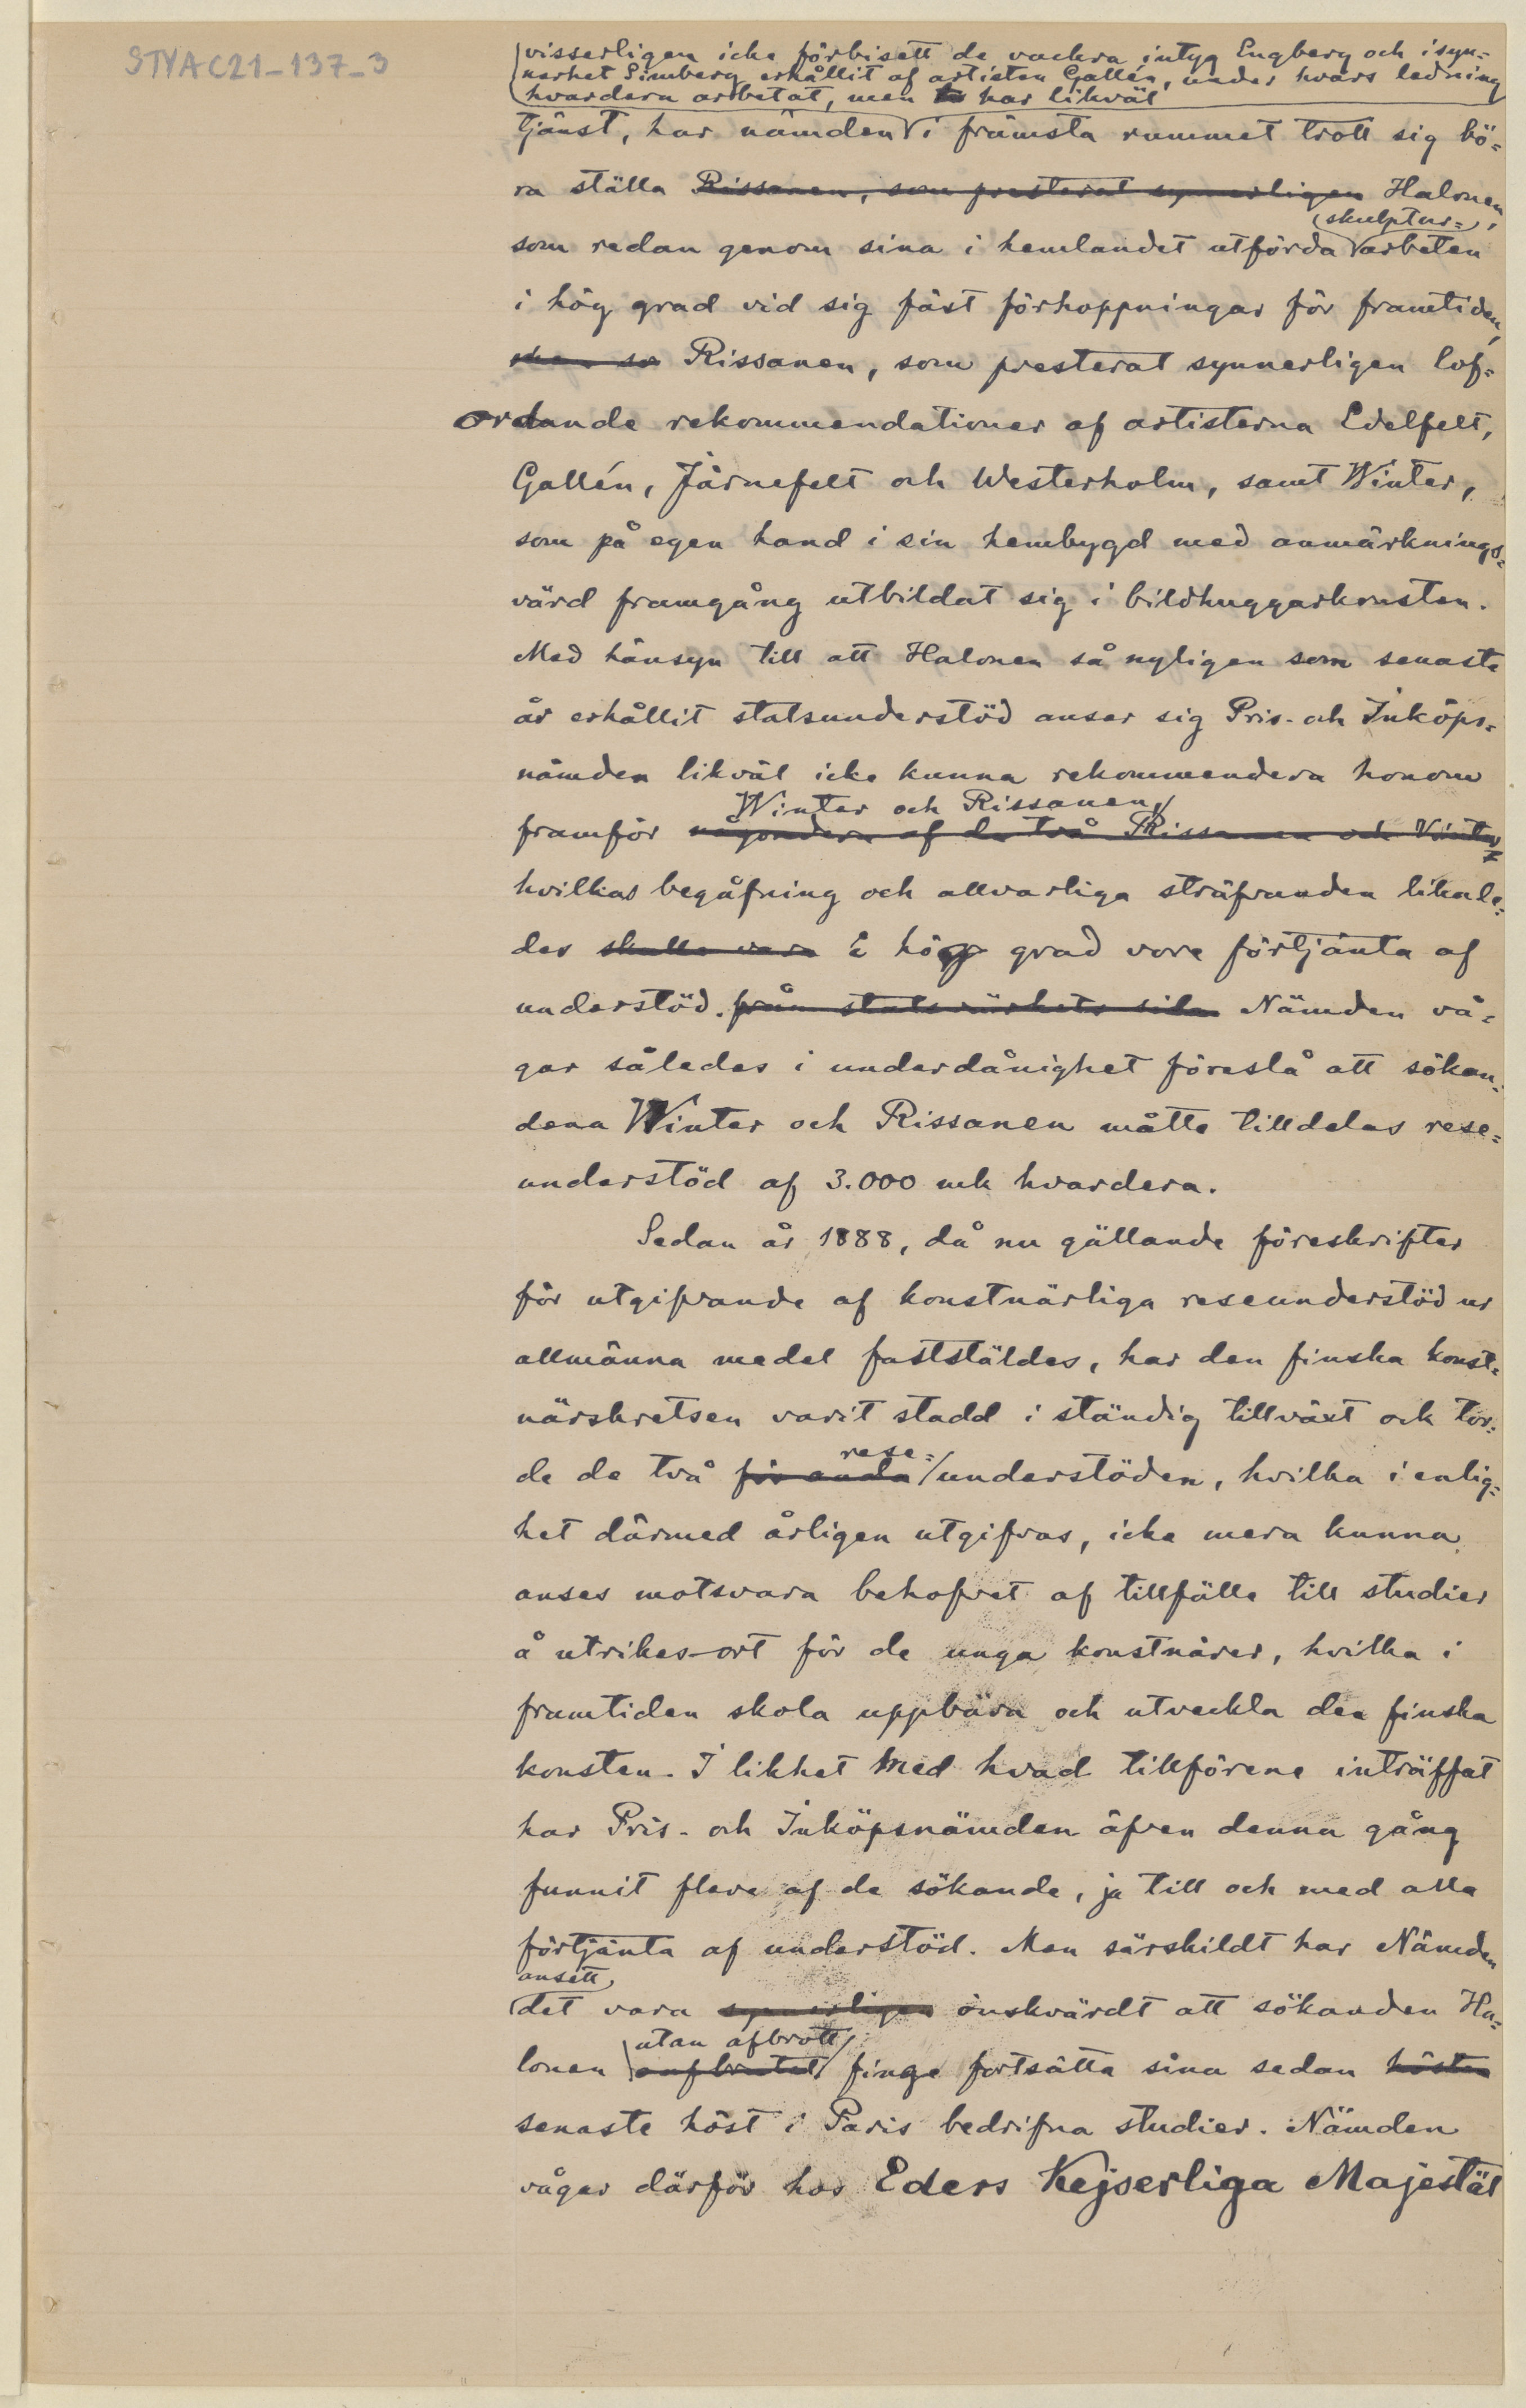 STYAC21-137-3
visserligen icke förbisett de vackra intyg Engberg och isyn=
nerhet Simberg erhållit af artisten Gallén, under hvars ledning
hvardera arbetat, men har likväl
tjänst, har nämden i främsta rummet trott sig bö=
ra ställa Rissanen, som presterat synnerligen Halonen,
skulptur=
som redan genom sina i hemlandet utförda arbeten
i hög grad vid sig fäst förhoppningar för framtiden,
Rissanen, som presterat synnerligen lof=
ordande rekommendationer af artisterna Edelfelt,
Gallén, Järnefelt och Westerholm, samt Winter,
som på egen hand i sin hembygd med anmärknings=
värd framgång utbildat sig i bildhuggarkonsten.
Med hänsyn till att Halonen så nyligen som senaste
år erhållit statsunderstöd anser sig Pris- och Inköps=
nämden likväl icke kunna rekommendera honom
Winter och Rissanen,
framför någondera af de två Rissanen och Winter,
hvilkas begåfning och allvarliga sträfvanden likale=
des skulle vara i hög grad vore förtjänta af
understöd. från statsvärkets sida Nämden vå=
gar således i underdånighet föreslå att sökan=
dena Winter och Rissanen måtte tilldelas rese=
understöd af 3.000 mk hvardera.
Sedan år 1888, då nu gällande föreskrifter
för utgifvande af konstnärliga reseunderstöd ur
allmänna medel fastställdes, har den finska konst=
närskretsen varit stadd i ständig tillväxt och tor=
rese=
de de två för anda understöden, hvilka i enlig=
het därmed årligen utgifvas, icke mera kunna
anses motsvara behofvet af tillfälle till studier
å utrikes-ort för de unga konstnärer, hvilka i
framtiden skola uppbära och utveckla den finska
konsten. I likhet med hvad tillförene inträffat
har Pris- och Inköpsnämden äfven denna gång
funnit flere af de sökande, ja till och med alla
förtjänta af understöd. Men särskildt har Nämden
ansett
det vara synnerligen önskvärdt att sökanden Ha=
utan afbrott
lonen oafbrutet finge fortsätta sina sedan hösten
senaste höst i Paris bedrifna studier. Nämden
vågar därför hos Eders Kejserliga Majestät